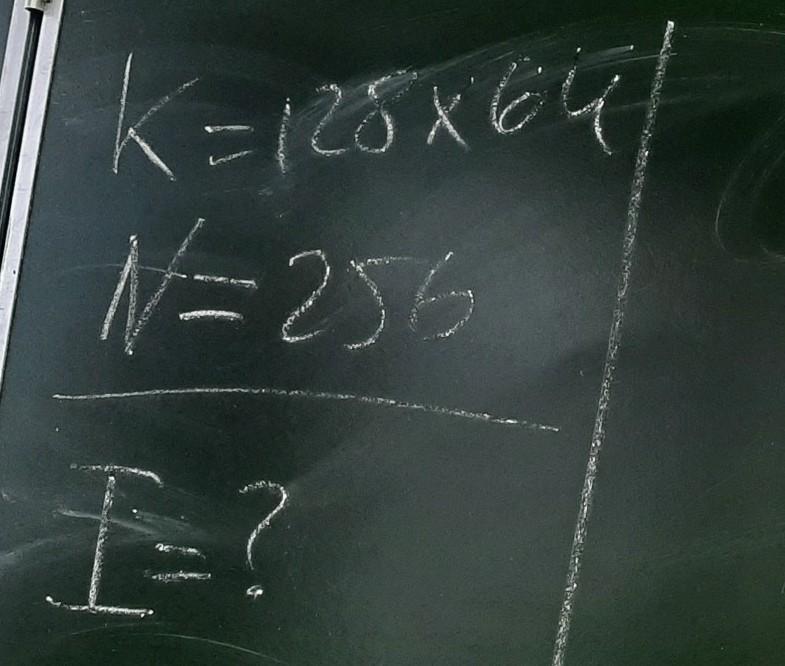 K=128x64
N=256
I=?